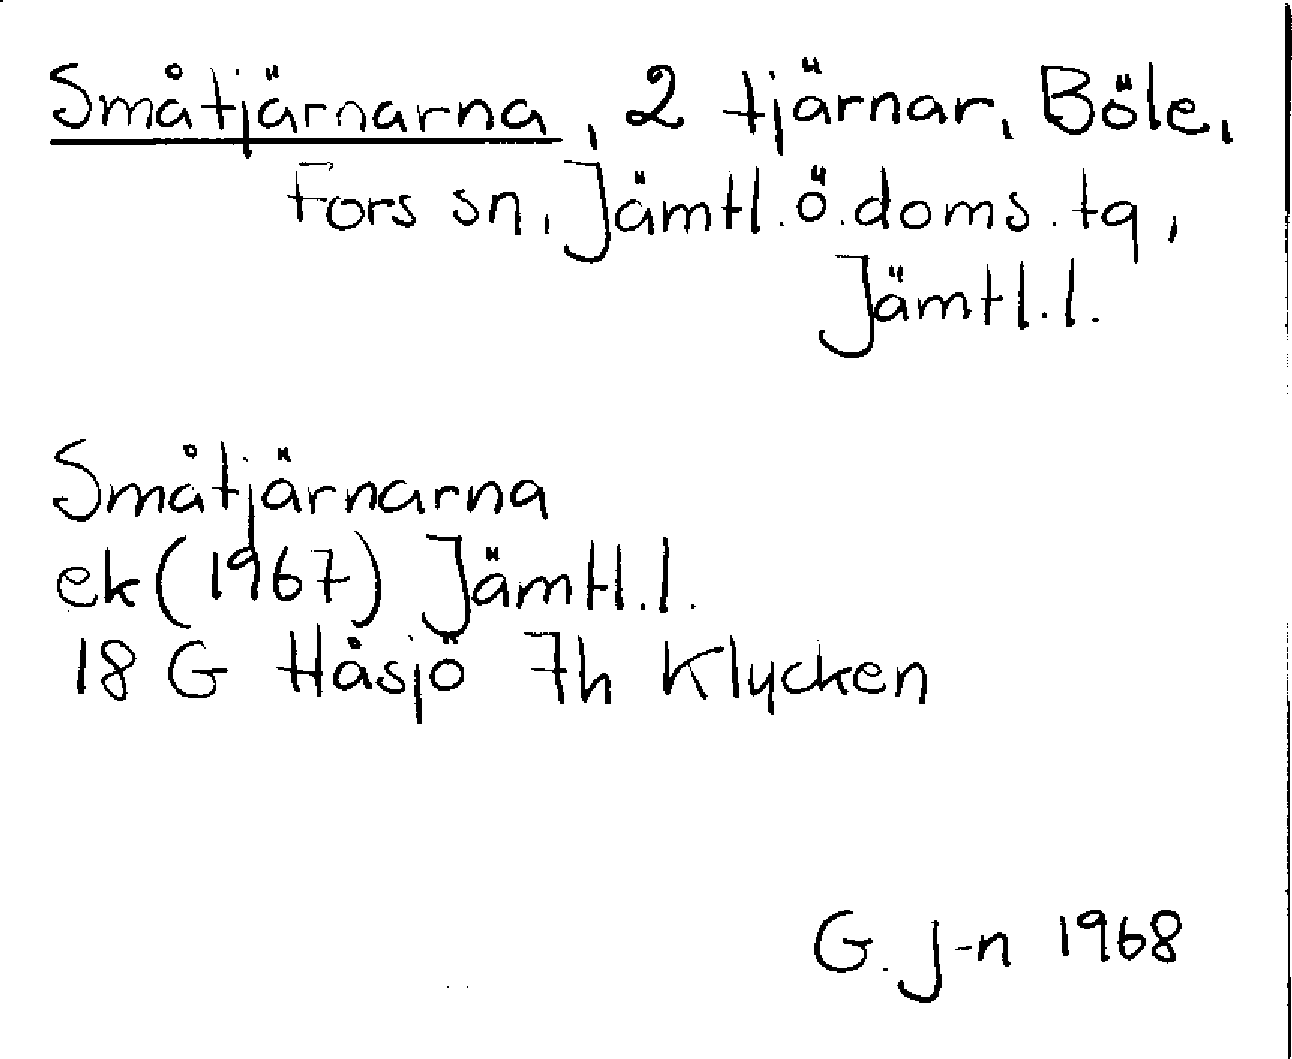 Småtjärnarna, 2 tjärnar, Böle,
Fors sn, Jämtl.ö.doms.tq,
Jämtl.l.
Småtjärnarna
ek(1967) Jämtl.l.
18 G Håsjö 7h Klycken
G. J-n 1968